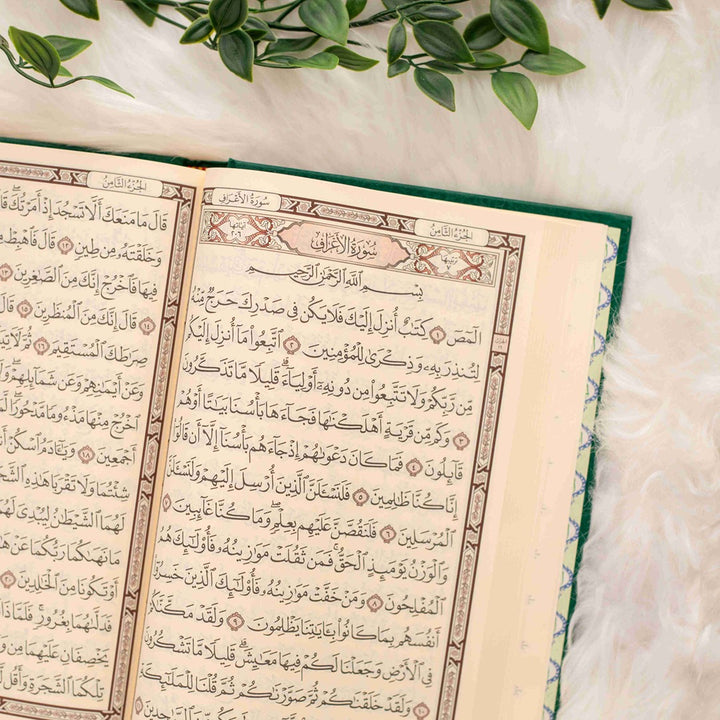 سُورَةُ الأَعْرَافِ
الجُزْءُ الثَّامِنُ
ترتيبها
سُورَةُ الأَعْرَافِ
آياتها ٢٠٦
بِسْمِ ٱللَّهِ ٱلرَّحْمَٰنِ ٱلرَّحِيمِ
الٓمٓصٓ ١ كِتَٰبٌ أُنزِلَ إِلَيْكَ فَلَا يَكُن فِى صَدْرِكَ حَرَجٌ مِّنْهُ
لِتُنذِرَ بِهِۦ وَذِكْرَىٰ لِلْمُؤْمِنِينَ ٢ ٱتَّبِعُوا۟ مَآ أُنزِلَ إِلَيْكُم
مِّن رَّبِّكُمْ وَلَا تَتَّبِعُوا۟ مِن دُونِهِۦٓ أَوْلِيَآءَ ۗ قَلِيلًا مَّا تَذَكَّرُونَ
٣ وَكَم مِّن قَرْيَةٍ أَهْلَكْنَٰهَا فَجَآءَهَا بَأْسُنَا بَيَٰتًا أَوْ هُمْ
قَآئِلُونَ ٤ فَمَا كَانَ دَعْوَىٰهُمْ إِذْ جَآءَهُم بَأْسُنَآ إِلَّآ أَن قَالُوٓا۟
إِنَّا كُنَّا ظَٰلِمِينَ ٥ فَلَنَسْـَٔلَنَّ ٱلَّذِينَ أُرْسِلَ إِلَيْهِمْ وَلَنَسْـَٔلَنَّ
ٱلْمُرْسَلِينَ ٦ فَلَنَقُصَّنَّ عَلَيْهِم بِعِلْمٍ ۖ وَمَا كُنَّا غَآئِبِينَ ٧
وَٱلْوَزْنُ يَوْمَئِذٍ ٱلْحَقُّ ۚ فَمَن ثَقُلَتْ مَوَٰزِينُهُۥ فَأُو۟لَٰٓئِكَ هُمُ
ٱلْمُفْلِحُونَ ٨ وَمَنْ خَفَّتْ مَوَٰزِينُهُۥ فَأُو۟لَٰٓئِكَ ٱلَّذِينَ خَسِرُوٓا۟
أَنفُسَهُم بِمَا كَانُوا۟ بِـَٔايَٰتِنَا يَظْلِمُونَ ٩ وَلَقَدْ مَكَّنَّٰكُمْ
فِى ٱلْأَرْضِ وَجَعَلْنَا لَكُمْ فِيهَا مَعَٰيِشَ ۗ قَلِيلًا مَّا تَشْكُرُونَ
١٠ وَلَقَدْ خَلَقْنَٰكُمْ ثُمَّ صَوَّرْنَٰكُمْ ثُمَّ قُلْنَا لِلْمَلَٰٓئِكَةِ
الجُزْءُ الثَّامِنُ
قَالَ مَا مَنَعَكَ أَلَّا تَسْجُدَ إِذْ أَمَرْتُكَ ۖ
وَخَلَقْتَهُۥ مِن طِينٍ ١٢ قَالَ فَٱهْبِطْ
فِيهَا فَٱخْرُجْ إِنَّكَ مِنَ ٱلصَّٰغِرِينَ ١٣
١٤ قَالَ إِنَّكَ مِنَ ٱلْمُنظَرِينَ ١٥ قَالَ
صِرَٰطَكَ ٱلْمُسْتَقِيمَ ١٦ ثُمَّ لَءَاتِيَنَّهُم
وَعَنْ أَيْمَٰنِهِمْ وَعَن شَمَآئِلِهِمْ ۖ
ٱخْرُجْ مِنْهَا مَذْءُومًا مَّدْحُورًا ۖ
أَجْمَعِينَ ١٨ وَيَٰٓـَٔادَمُ ٱسْكُنْ
شِئْتُمَا وَلَا تَقْرَبَا هَٰذِهِ
لَهُمَا ٱلشَّيْطَٰنُ لِيُبْدِىَ لَهُمَا
مَا نَهَىٰكُمَا رَبُّكُمَا عَنْ
أَوْ تَكُونَا مِنَ ٱلْخَٰلِدِينَ ٢٠
فَدَلَّىٰهُمَا بِغُرُورٍ ۚ فَلَمَّا
يَخْصِفَانِ عَلَيْهِمَا مِن
تِلْكُمَا ٱلشَّجَرَةِ وَأَقُل